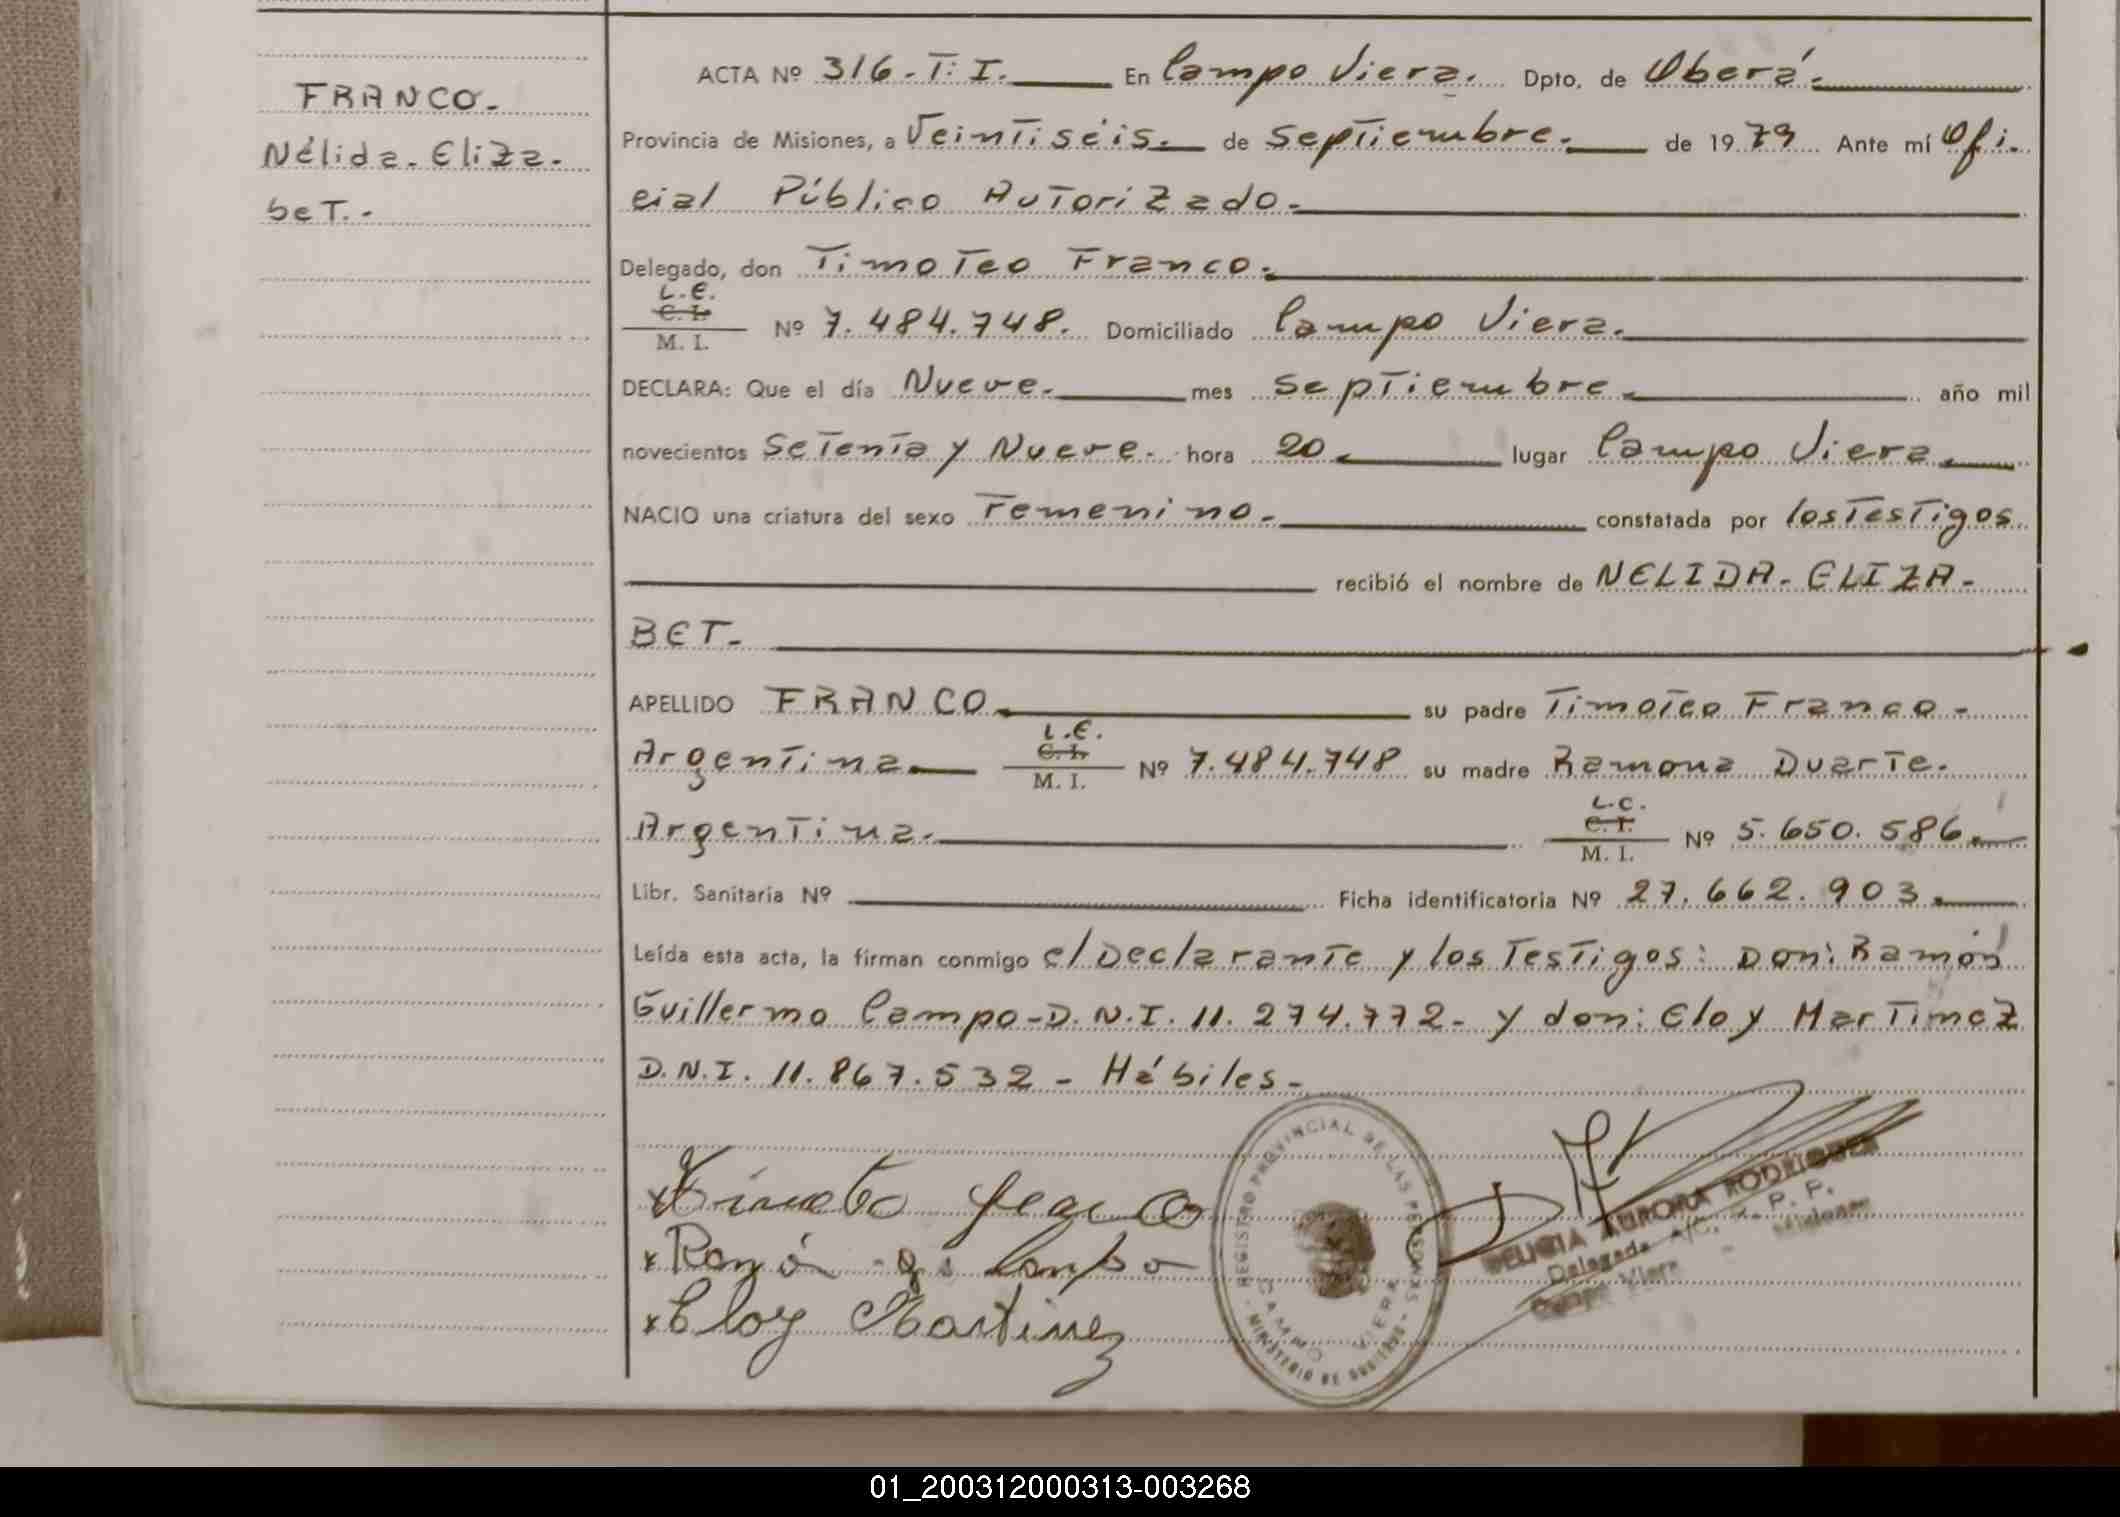 FRANCO.-
Nélida. Eliza-
beT.-
ACTA Nº 316.T: I. En Campo Viera. Dpto. de Oberá.
Provincia de Misiones, a Veintiséis. de Septiembre. de 1979 Ante mí Ofi-
cial Público Autorizado.
Delegado, don Timoteo Franco.
L.E.
C. I.
M. I.
Nº 7.484.748. Domiciliado Campo Viera.
DECLARA: Que el día Nueve. mes Septiembre. año mil
novecientos Setenta y Nueve. hora 20. lugar Campo Viera.
NACIO una criatura del sexo Femenino. constatada por los Testigos
recibió el nombre de NELIDA. ELIZA-
BET.
APELLIDO FRANCO. su padre Timoteo Franco-
L.E.
C. I.
M. I.
Argentina. Nº 7.484.748 su madre Ramona Duarte.
L.C.
C. I.
M. I.
Argentina. Nº 5.650.586.
Libr. Sanitaria Nº Ficha identificatoria Nº 27.662.903.
Leída esta acta, la firman conmigo el Declarante y los Testigos: Don: Ramón
Guillermo Campo-D.N.I. 11.274.772- y don: Eloy Martinez
D.N.I. 11.867.532 - Hábiles-
REGISTRO PROVINCIAL DE LAS PERSONAS
CAMPO VIERA
MINISTERIO DE GOBIERNO
DELICIA AURORA RODRIGUEZ
Delegada A/C. R. P. P.
Campo Viera - Misiones
x Timoteo Franco
x Ramón G. Campo
x Eloy Martinez
01_200312000313-003268